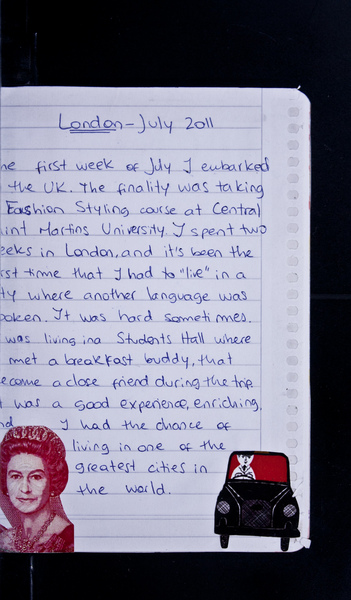 London - July 2011
he first week of July I embarked
the UK. The finality was taking
Fashion Styling course at Central
int Martins University. I spent two
eeks in London, and it's been the
rst time that I had to "live" in a
ty where another language was
poken. It was hard sometimes.
was living in a Students Hall where
met a breakfast buddy, that
ecome a close friend during the trip
t was a good experience, enriching,
nd I had the chance of
living in one of the
greatest cities in
the world.